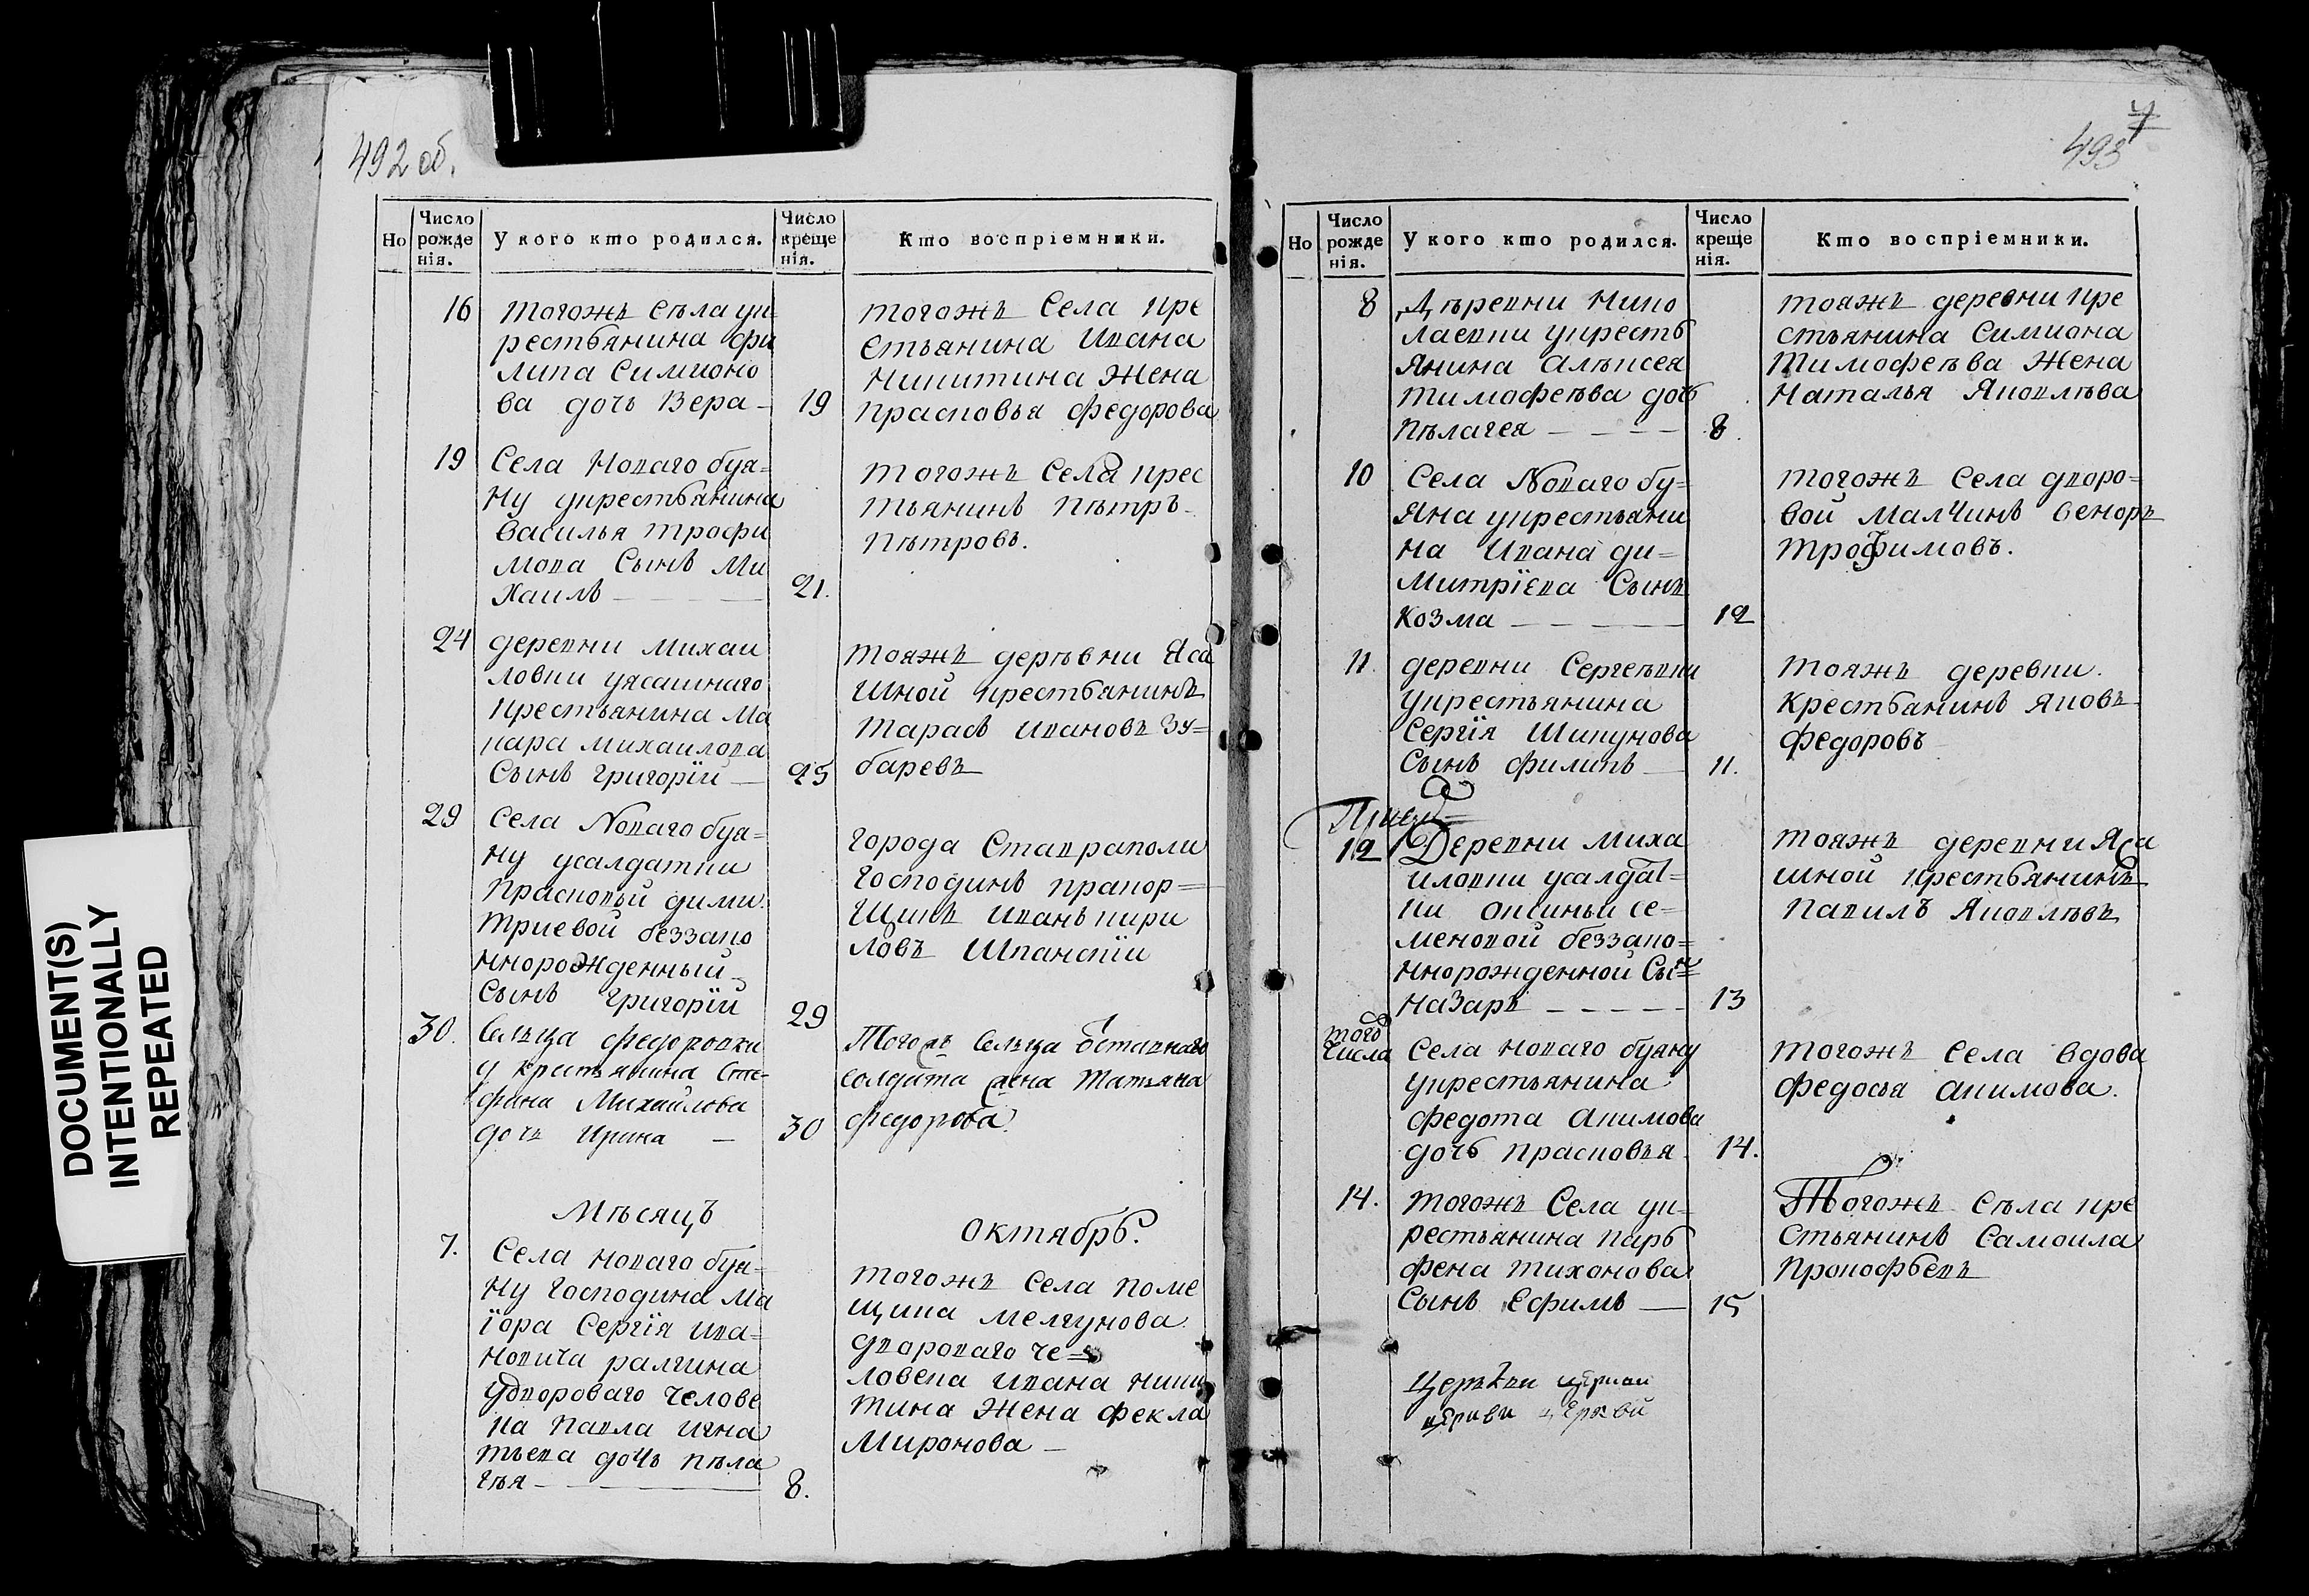 492 об.
Но
Число рожде нія.
У кого кто родился.
Число креще нія.
Кто воспріемники.
16
тогожъ Сѣла ук
рестьянина фи
липа Симионо
ва дочь Вера
19
тогожъ Села кре
стьянина Ивана
Никитина Жена
Прасковья федорова
19
Села Новаго буя=
ну укрестьянина
василья трофи
мова Сынъ Ми
хаилъ
21.
тогожъ Села крес
тьянинъ Пѣтръ
Пѣтровъ.
24
деревни михаи
ловки уясашнаго
крестьянина Ма
кара михаилова
Сынъ григорїи
25
тояжъ дерѣвни Яса
шной крестьянинъ
тарасъ ивановъ зу=
баревъ
29
Села Новаго буя=
ну усалдатки
прасковьи дими
триевой беззако
ннорожденный
Сынъ григорїй
29
города Ставраполи
господинъ прапор=
щикъ иванъ кири
ловъ Шпанскїи
30.
Сельца федоровки
у крестьянина Сте-
фана Михайлова
дочь Ирина
30
Тогожъ Сельца Отставнаго
солдата жена татьяна
федорова
Мѣсяцъ
Октябрь.
7.
Села новаго буя=
ну господина ма
їора Сергїя ива=
новича ралгина
удвороваго челове
ка павла игна
тьева дочь пѣла
гѣя
8.
тогожъ Села поме
щика мелгунова
двороваго че=
ловека ивана ники
тина Жена фекла
Миронова
DOCUMENT(S)
INTENTIONALLY
REPEATED
7
493
Но
Число рожде нія.
У кого кто родился.
Число креще нія.
Кто воспріемники.
8
Дѣревни Нико
лаевки укресть
янина Алѣксея
тимофеѣва дочь
Пѣлагея
8.
тояжъ деревни кре
стьянина Симиона
тимофеѣва Жена
наталья Яковлѣва
10
Села Новаго бу=
яна укрестьяни
на ивана ди=
митрїева Сынъ
Козма
12
тогожъ Села дворо=
вой малчинъ
трофимовъ.
11.
деревни Сергеѣвки
укрестьянина
Сергїя Шипунова
Сынъ филипъ
11.
тояжъ деревни.
крестьянинъ яковъ
федоровъ
12
Деревни миха
иловки усалдат=
ки оксиньи се=
меновой беззако=
ннорожденной Сынъ
назаръ
13
тояжъ деревни Яса
шной крестьянинъ
павилъ Яковлѣвъ
того
числа
Села новаго буяну
укрестьянина
федота акимова
дочь прасковья
14.
тогожъ Села вдова
федосья акимова.
14.
тогожъ Села ук
рестьянина парѳ
фена тихонова
Сынъ Ефимъ
15
Тогожъ Сѣла кре
стьянинъ Самоила
Прокофьевъ